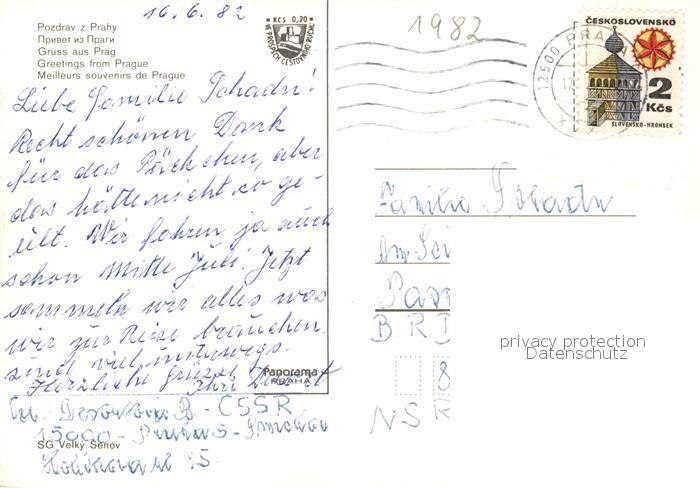 16. 6. 82
Pozdrav z Prahy
Привет из Праги
Gruss aus Prag
Greetings from Prague
Meilleurs souvenirs de Prague
Kčs 0,20
VE PROSPĚCH CESTOVNÍHO RUCHU
1982
ČESKOSLOVENSKO
2
Kčs
SLOVENSKO-HRONSEK
12500 PRAHA
Liebe Familie Schadn!
Recht schönen Dank
für das Päckchen, aber
das hätte nicht so ge-
eilt. Wir fahren ja auch
schon Mitte Juli. Jetzt
sammeln wir alles was
wir zur Reise brauchen.
sind viel unterwegs.
Herzliche Grüsse Ihr
Panorama
PRAHA
B - ČSSR
15000 - Praha 5 - Smíchov
SG Velký Šenov
15.
Familie Schadn
Am
Pass
BRD
8
NSR
privacy protection
Datenschutz